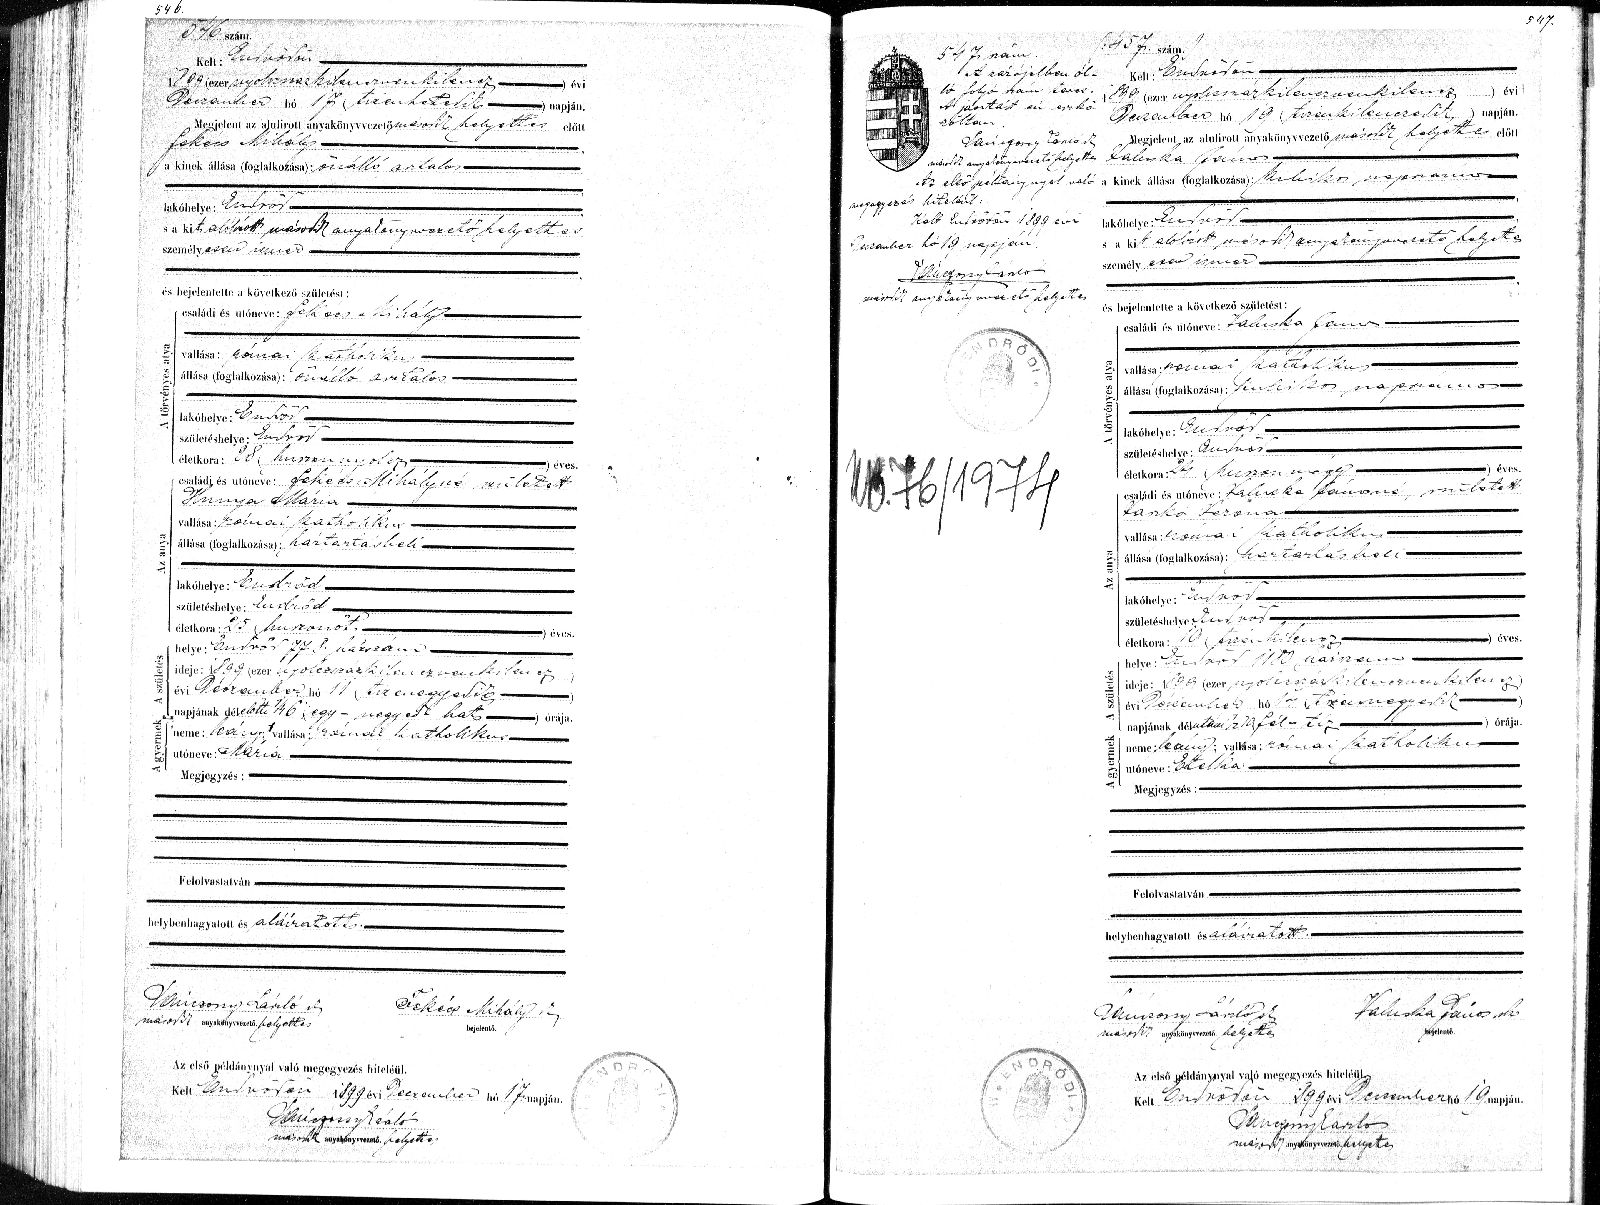 546.
546 szám.
Kelt: Endrődön
1899 (ezer nyolczszázkilenczvenkilencz) évi
Deczember hó 17 (tizenhetedik) napján.
Megjelent az alulirott anyakönyvvezető második helyettes előtt
Fekécs Mihály
a kinek állása (foglalkozása): önálló asztalos
lakóhelye: Endrőd
s a kit alólirott második anyakönyvvezető helyettes
személyesen ismer
és bejelentette a következő születést:
A törvényes atya
családi és utóneve: Fekécs Mihály
vallása: római katholikus
állása (foglalkozása): önálló asztalos
lakóhelye: Endrőd
születéshelye: Endrőd
életkora: 28 (huszonnyolcz) éves.
Az anya
családi és utóneve: Fekécs Mihályné született
Hunya Mária
vallása: római katholikus
állása (foglalkozása): háztartásbeli
lakóhelye: Endrőd
születéshelye: Endrőd
életkora: 25 (huszonöt) éves.
A születés
helye: Endrőd 77 házszám
ideje: 1899 (ezer nyolczszázkilenczvenkilencz)
évi Deczember hó 11 (tizenegyedik)
napjának délelőtti ¼6 (egy-negyed hat) órája.
A gyermek
neme: leány; vallása: római katholikus
utóneve: Mária
Megjegyzés:
Felolvastatván
helybenhagyatott és aláiratott.
László
Fekécs Mihály
második anyakönyvvezető. helyettes
bejelentő.
Az első példánynyal való megegyezés hiteléül.
Kelt Endrődön 1899 évi Deczember hó 17 napján.
László
második anyakönyvvezető. helyettes
ENDRŐDI
547.
547 szám.
Az zárójelben
folyó szám
László
második anyakönyvvezető helyettes
Az első példánynyal való
megegyezés hiteléül:
Kelt Endrődön 1899 évi
Deczember hó 19 napján.
László
második anyakönyvvezető helyettes
ENDRŐDI
76/1974
457. szám.
Kelt: Endrődön
1899 (ezer nyolczszázkilenczvenkilencz) évi
Deczember hó 19 (tizenkilenczedik) napján.
Megjelent az alulirott anyakönyvvezető második helyettes előtt
Valuska János
a kinek állása (foglalkozása): kubikos napszámos
lakóhelye: Endrőd
s a kit alólirott második anyakönyvvezető helyettes
személyesen ismer
és bejelentette a következő születést:
A törvényes atya
családi és utóneve: Valuska János
vallása: római katholikus
állása (foglalkozása): kubikos napszámos
lakóhelye: Endrőd
születéshelye: Endrőd
életkora: 24 (huszonnégy) éves.
Az anya
családi és utóneve: Valuska Jánosné, született
vallása: római katholikus
állása (foglalkozása): háztartásbeli
lakóhelye: Endrőd
születéshelye: Endrőd
életkora: 19 (tizenkilencz) éves.
A születés
helye: Endrőd 1180 házszám
ideje: 1899 (ezer nyolczszázkilenczvenkilencz)
évi Deczember hó
napjának délutáni ½10 (fél-tíz) órája.
A gyermek
neme: leány; vallása: római katholikus
utóneve: Etelka
Megjegyzés:
Felolvastatván
helybenhagyatott és aláiratott.
László
Valuska János
második anyakönyvvezető. helyettes
bejelentő.
Az első példánynyal való megegyezés hiteléül.
Kelt Endrődön 1899 évi Deczember hó 19 napján.
László
második anyakönyvvezető. helyettes
ENDRŐDI